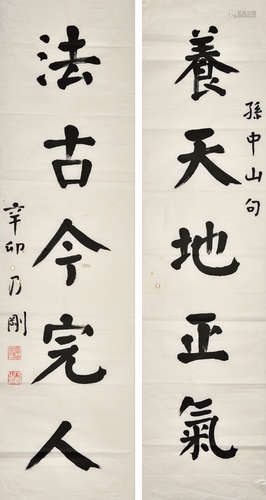 養天地正氣
孫中山句
法古今完人
辛卯乃剛